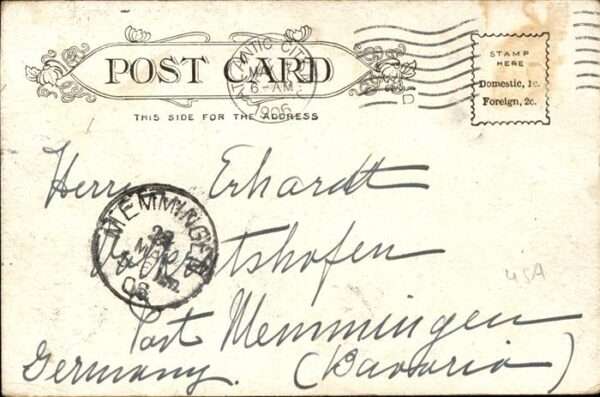 POST CARD
THIS SIDE FOR THE ADDRESS
ATLANTIC CITY
6-AM
1906
D
STAMP
HERE
Domestic, 1c.
Foreign, 2c.
Herrn Erhardt
MEMMINGEN
29
06
USA
Post Memmingen
Germany. (Bavaria)